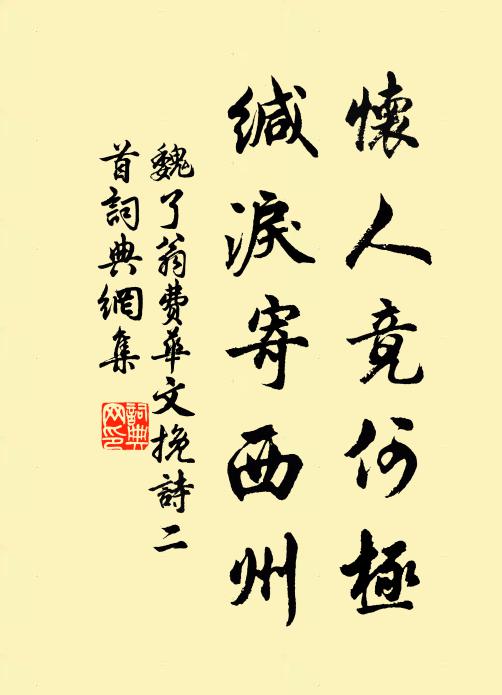 懷人竟何極
緘淚寄西州
魏了翁費華文挽詩二
首詞典網集
詞典
网印